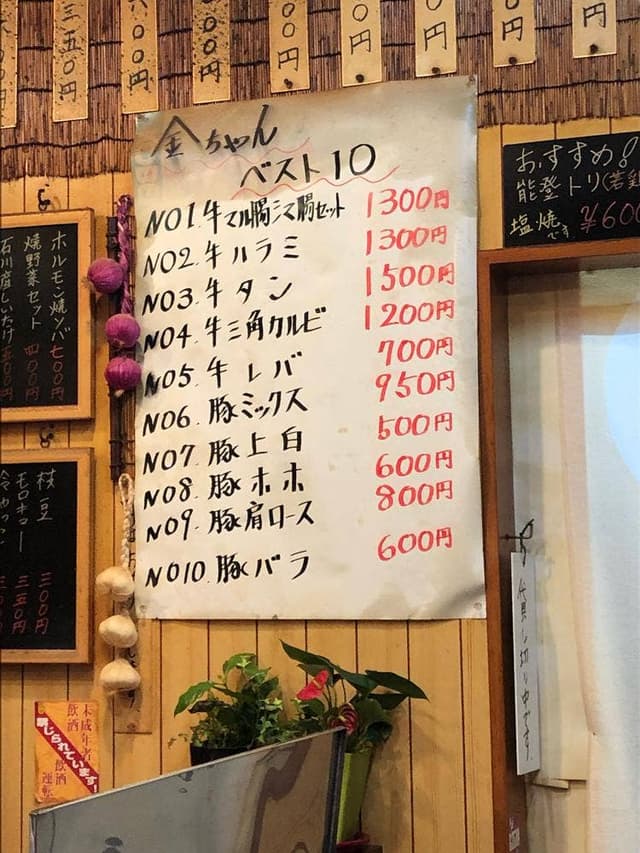 三五〇円
〇〇円
六〇〇円
〇〇円
〇〇円
〇円
円
円
円
金ちゃん
ベスト10
NO1.牛マル腸シマ腸セット 1300円
NO2.牛ハラミ 1300円
NO3.牛タン 1500円
NO4.牛三角カルビ 1200円
NO5.牛レバ 700円
NO6.豚ミックス 950円
NO7.豚上白 500円
NO8.豚ホホ 600円
NO9.豚肩ロース 800円
NO10.豚バラ 600円
おすすめ!
能登トリ(若鶏
塩焼です ¥600
ホルモン焼ソバ 七〇〇円
焼野菜セット 四〇〇円
石川産しいたけ 五〇〇円
枝豆 三〇〇円
モロキュー 三五〇円
冷やっこ 三〇〇円
未成年者飲酒
飲酒運転
禁じられています!
貸し切り中です。